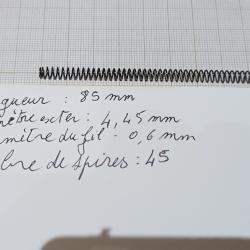 gueur : 85 mm
mètre exter : 4,45 mm
mètre du fil - 0,6 mm
bre de spires : 45